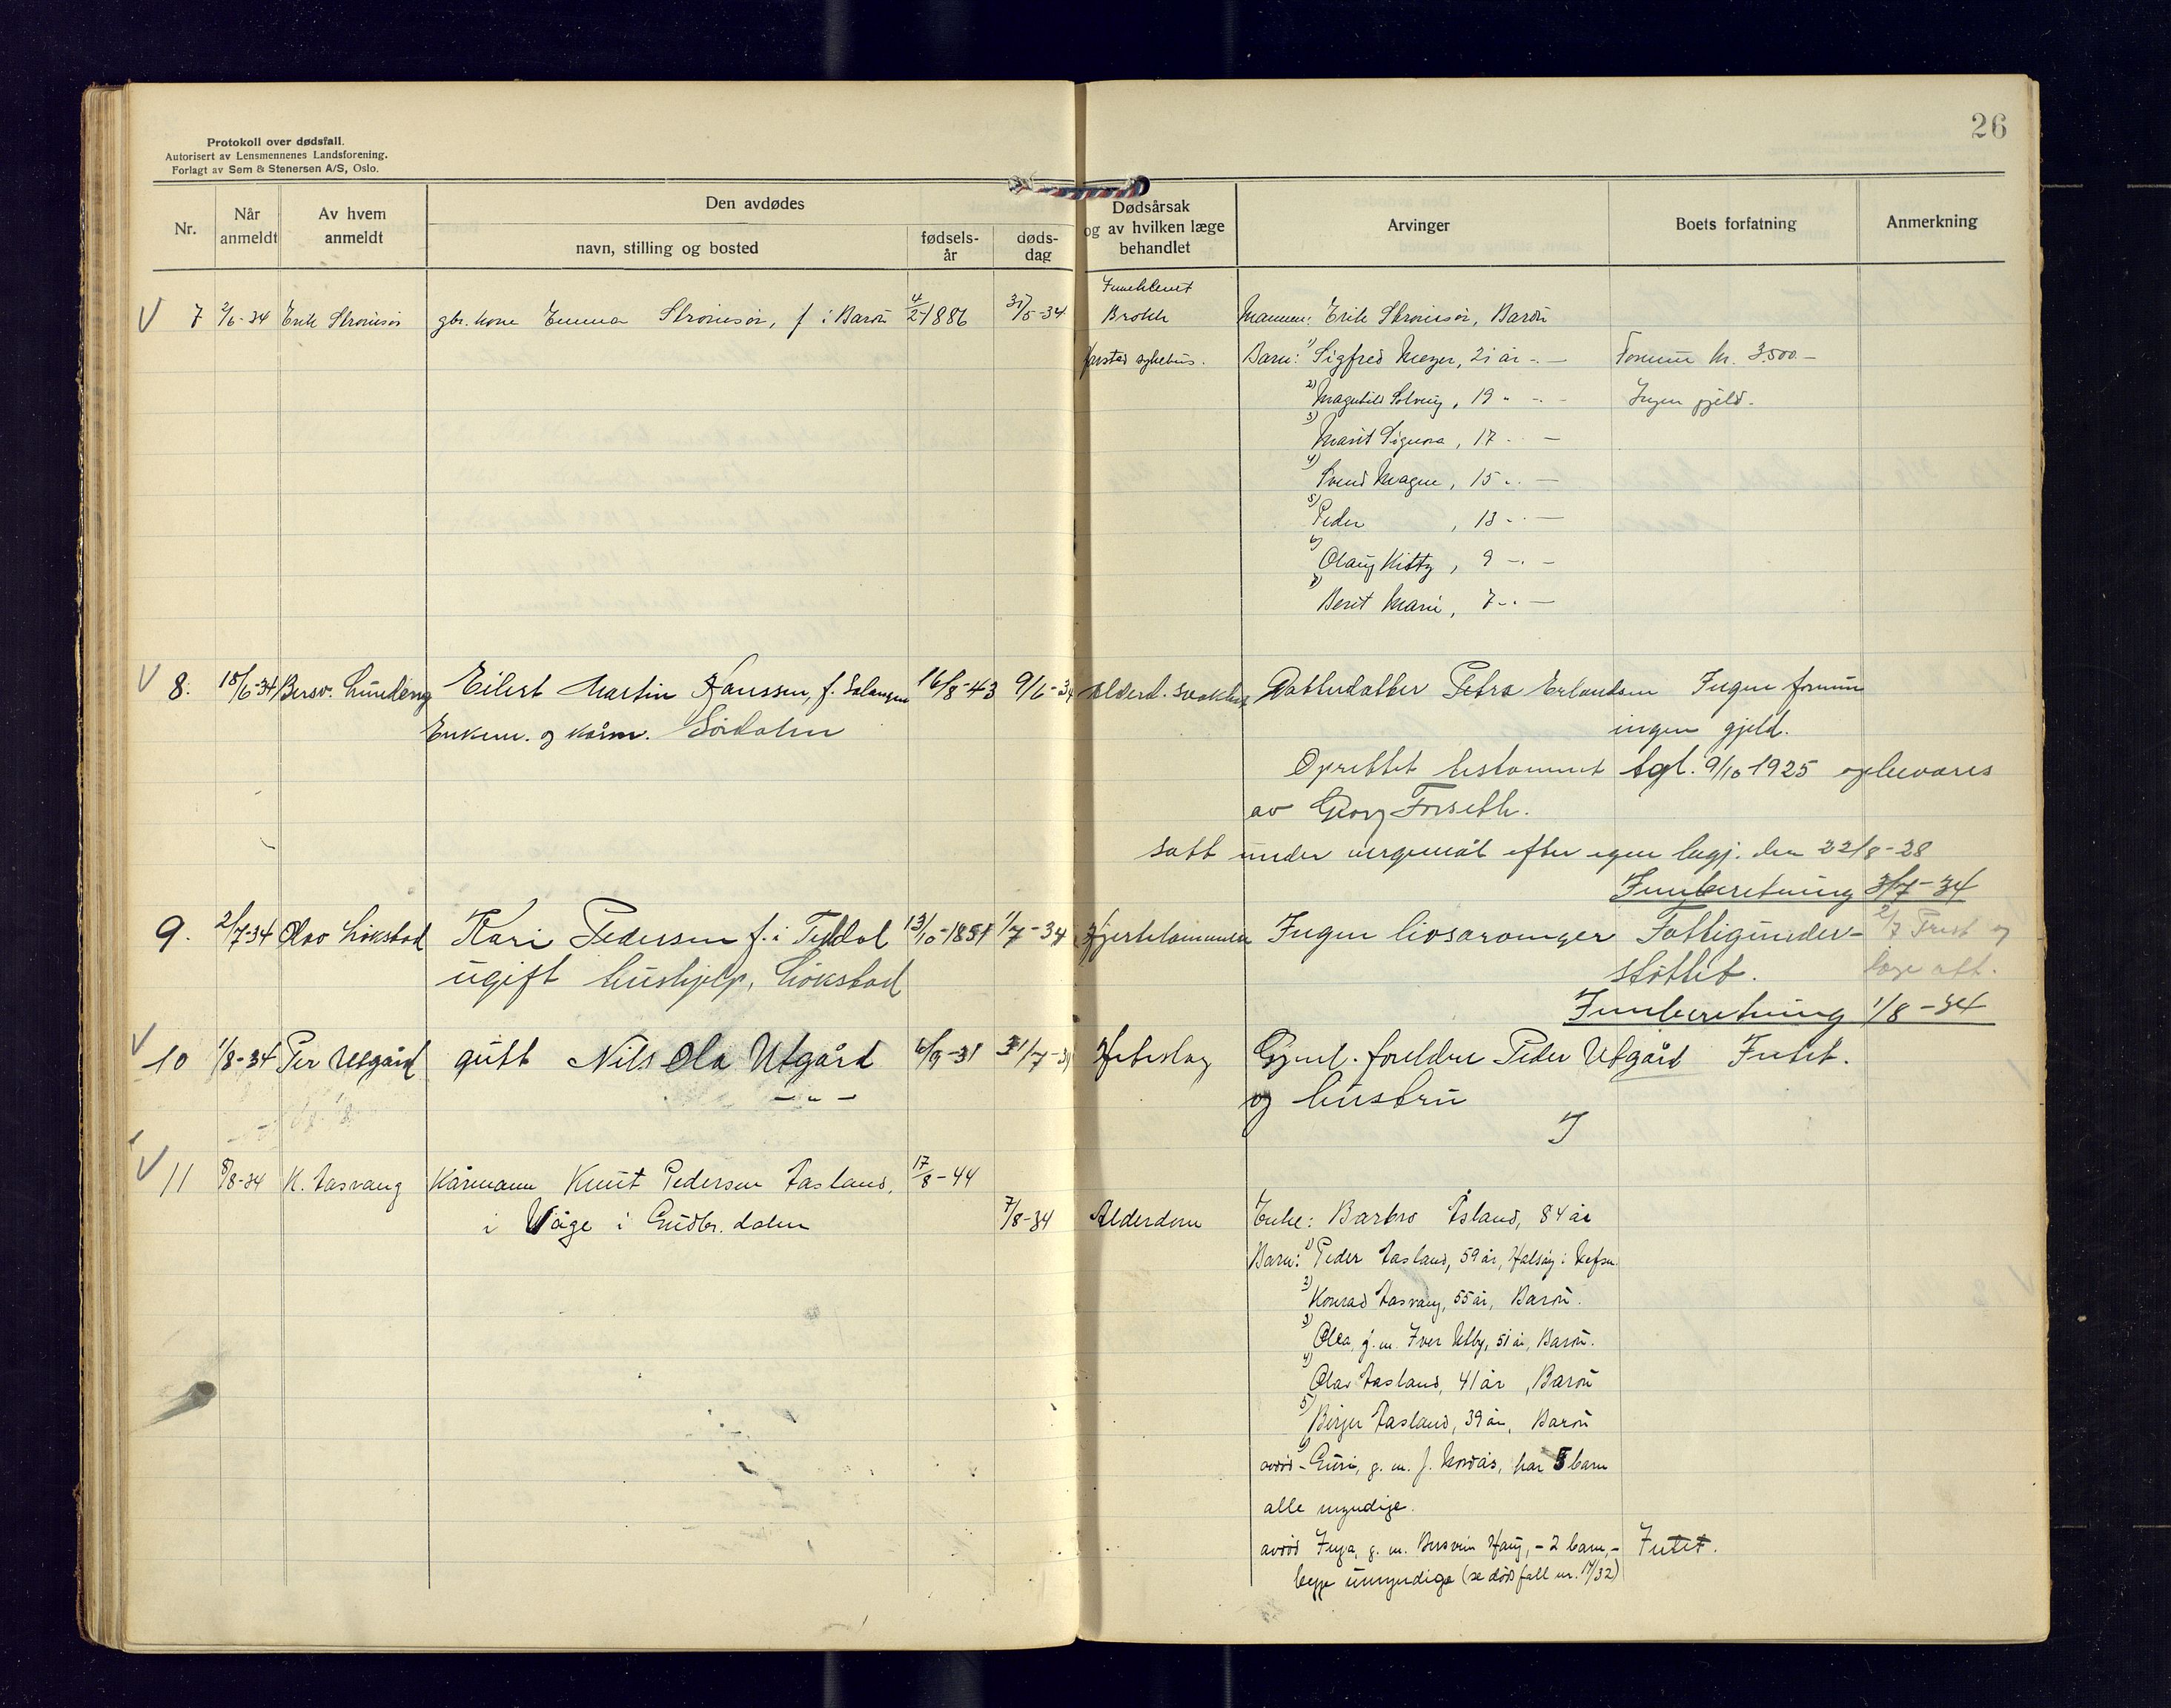 26
Protokoll over dødsfall.
Autorisert av Lensmennenes Landsforening.
Forlagt av Sem & Stenersen A/S, Oslo.
Nr.
Når anmeldt
Av hvem anmeldt
Den avdødes
navn, stilling og bosted
fødsels-år
døds-dag
Dødsårsak og av hvilken læge behandlet
Arvinger
Boets forfatning
Anmerkning
Inneklemt
7 2/6-34 Erik Strømsør gbr. kone Emma Strømsør, f i Bardu 4/2-1886 31/5-34 Brokk Mannen: Erik Strømsør, Bardu
Harstad sykehus. Barn: 1) Sigfred Meyer, 21 år -.- Formue kr. 3.500.-
2) Magnhild Solveig, 19 " -.- Ingen gjeld.
3) Marit Signora, 17 -.-
4) Svend Magne, 15 -.-
5) Peder , 13 -.-
6) Olaug Kitty, 9 -.-
7) Berit Marie, 7 -.-
8. 15/6-34 Bersv. Lundeng Eilert Martin Hanssen, f. Salangen 16/8-43 9/6-34 Alderd. svakhet Datterdatter Petra Erlandsen Ingen formue
Enkem. og kårm. Sördalen ingen gjeld.
Oprettet testament tgl. 9/10 1925 opbevares
av Georg Forseth.
Satt under vergemål efter egen begj. den 22/8-28
Innberetning 3/7-34
9. 2/7-34 Olav Lökstad Kari Pedersen f. i Tyldal 13/10-1851 1/7-34 Hjertelammelse Ingen livsarvinger Fattigunder- 2/7 Prest og
ugift hushjelp, Lökstad støttet. læge att.
Innberetning 1/8-34
10 1/8-34 Per Utgård gutt Nils Ola Utgård 6/9-31 31/7-34 Heteslag Gjenl. foreldre Peder Utgård Intet.
-"- og hustru
11 8/8-34 K. Aasvang Kårmann Knut Pedersen Aasland, 17/8-44
i Våge i Gudbr. dalen 7/8-34 Alderdom Enke: Barbro Åsland, 84 år
Barn: 1) Peder Aasland, 59 år, Halsøy i Vefsn.
2) Konrad Aasvang, 55 år, Bardu.
3) Olea, g. m. Iver Utby, 51 år, Bardu.
4) Olav Aasland, 41 år, Bardu
5) Birger Aasland, 39 år, Bardu
6) avdød - Guri, g. m. J. Nordås, har 5 barn
alle myndige.
avdød Inga, g. m. Bersvein Haug, - 2 barn, - Intet.
begge umyndige (se dødsfall nr. 17/32)